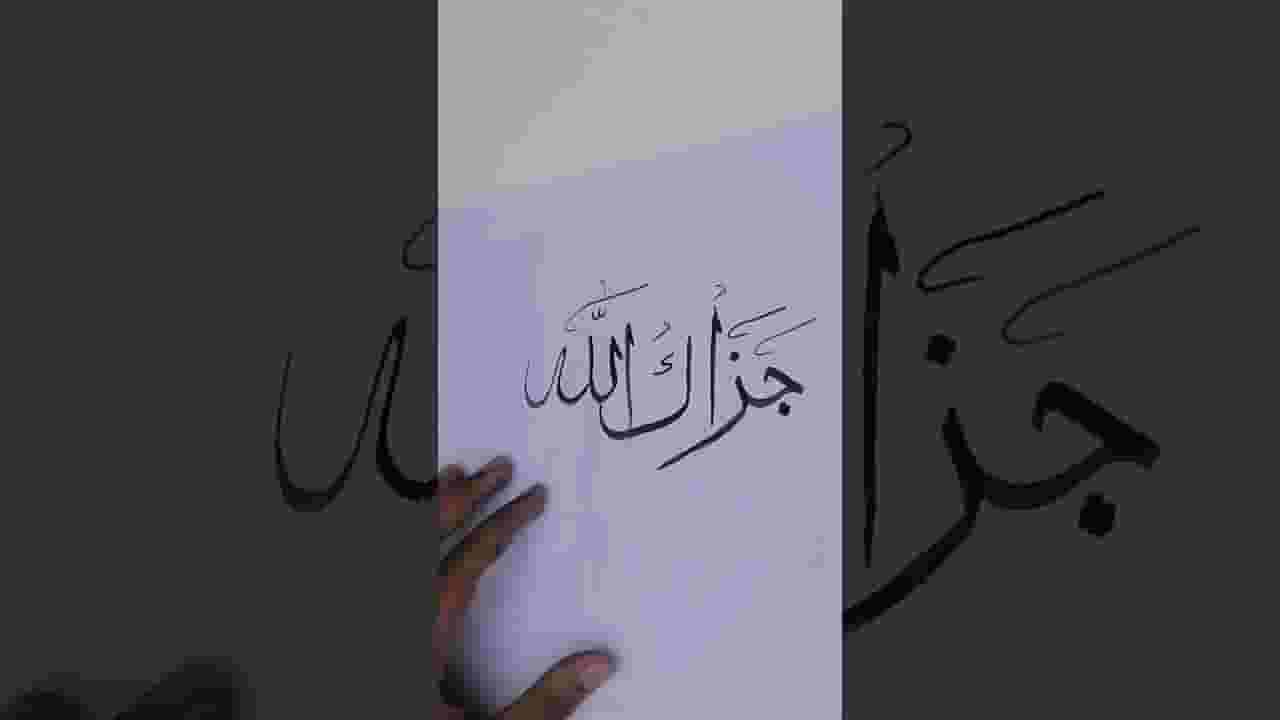 جَزَاكَ اللَّه